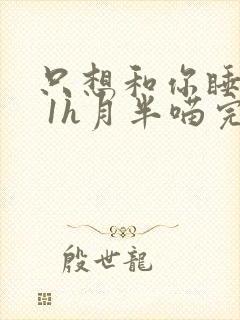 只想和你睡
1h月半喵完
殷世龍